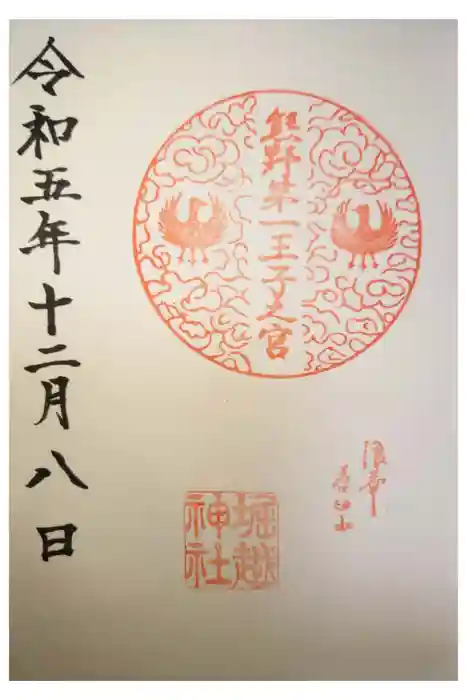 熊野第一王子之宮
浪華
茶臼山
堀越
神社
令和五年十二月八日